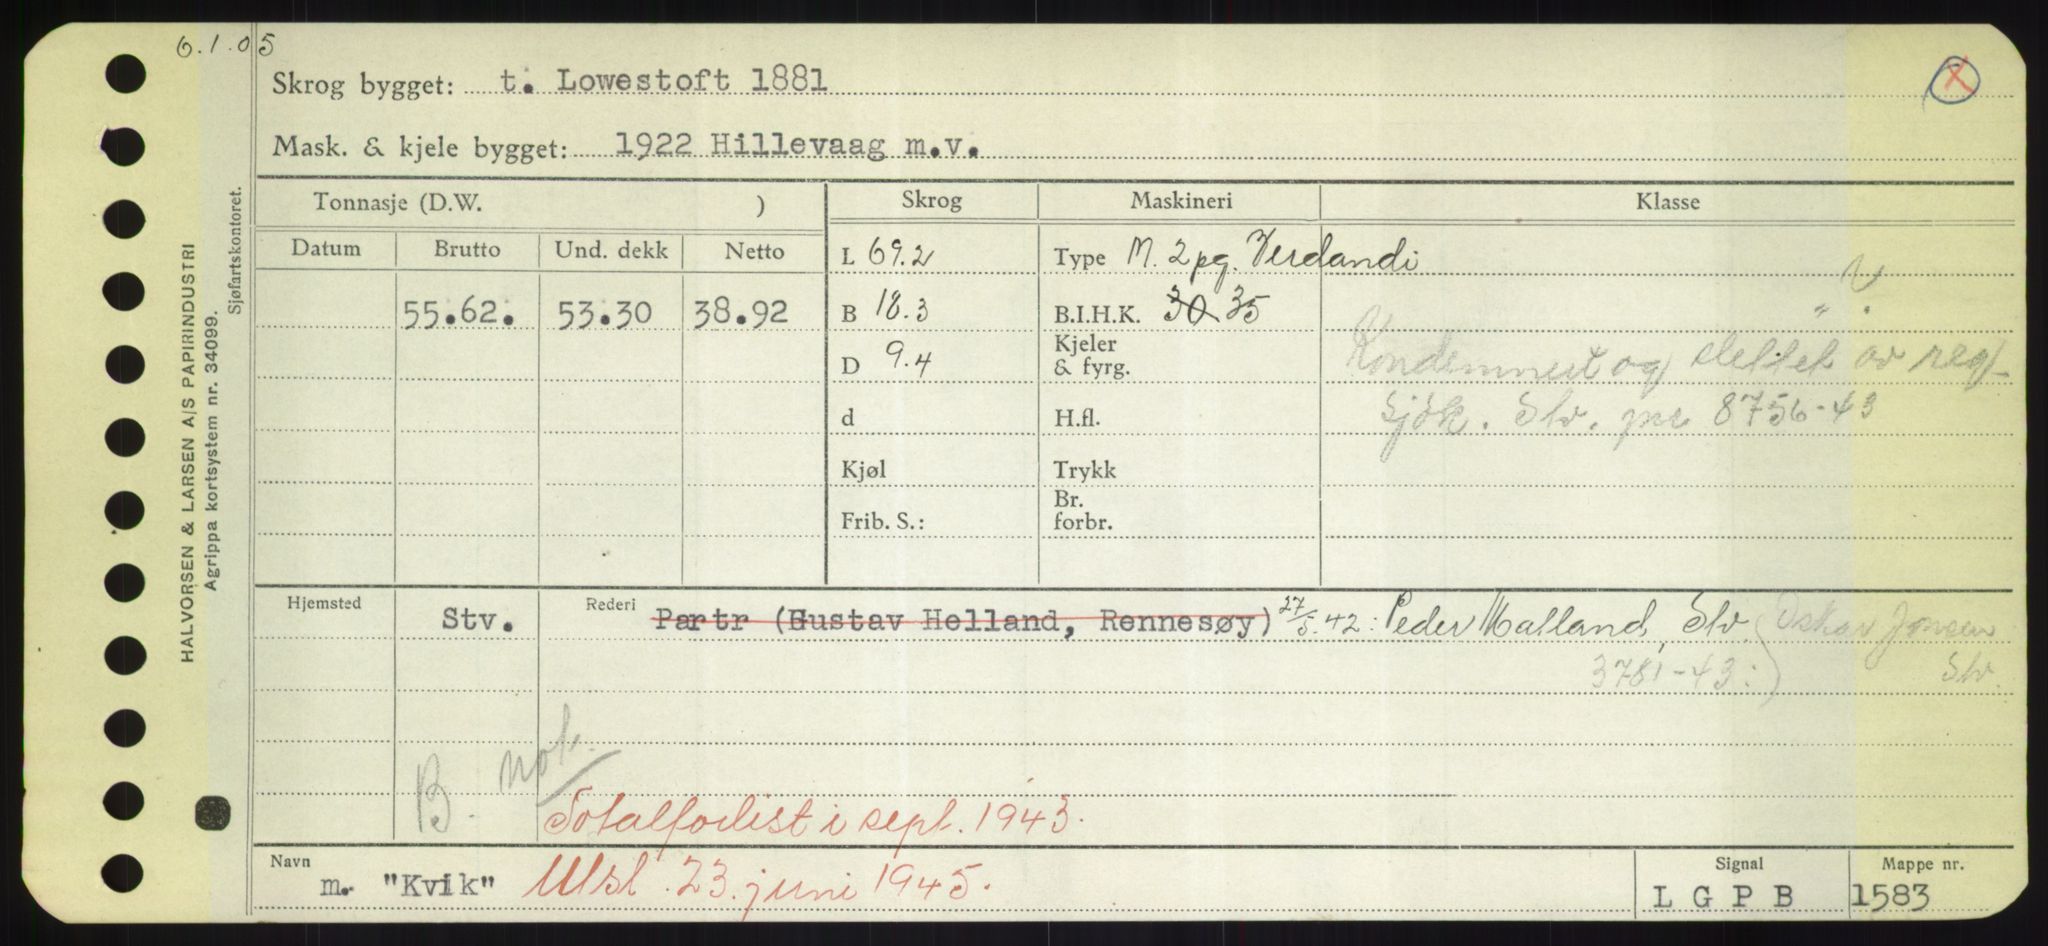 6.1.05
Skrog bygget: t. Lowestoft 1881
X
Mask. & kjele bygget: 1922 Hillevaag m.v.
HALVORSEN & LARSEN A/S PAPIRINDUSTRI
Agrippa kortsystem nr. 34099.
Sjøfartskontoret.
Tonnasje (D.W. ) Skrog Maskineri Klasse
Datum Brutto Und. dekk Netto
L 69.2 Type M. 2 pg. Verdandi
55.62. 53.30 38.92 B 18.3 B.I.H.K. 30 35
D 9.4 Kjeler & fyrg.
Kondemnert og slettet av reg
Sjøk. Stv. jnr 8756-43
d H.fl.
Kjøl Trykk
Frib. S.: Br. forbr.
Hjemsted Stv. Rederi Partr (Gustav Helland, Rennesøy) 27/5.42: Peder Malland, Stv. Oskar Jonsen
3781-43:) Stv.
B. not.
Totalforlist i sept. 1943.
Navn m. "Kvik" Utsl. 23. juni 1945.
Signal L G P B
Mappe nr. 1583